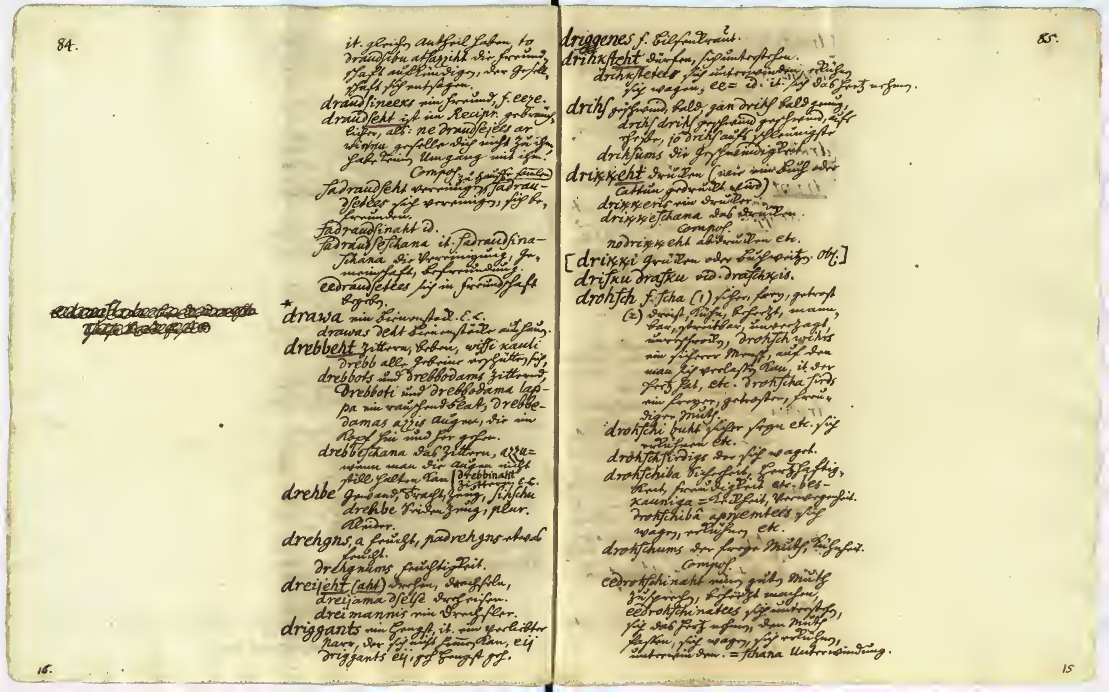 84.
it. gleichen Antheil haben, to
draudsibu atsazziht die Freund-
schaft aufkündigen, der Gesell-
schaft sich entsagen.
draudsineeks ein Freund, f. eeze.
draudseht ist im Recipr. gebräuch
licher, als: ne draudsejees ar
geselle dich nicht zu ihm,
habe keinen Umgang mit ihm.
Compos.
sadraudseht vereinigen, sadrau-
dsetees sich vereinigen, sich be-
freunden.
sadraudsinaht id.
sadraudseschana it. sadraudsina-
schana die Vereinigung, Ge-
meinschaft, Befreundung.
eedraudsetees sich in Freundschaft
begeben.
drawa ein Bienenstock. E. L.
drawas deht Bienenstöcke aushauen.
drebbeht zittern, beben, wissi kauli
drebb alle Gebeine erschüttern sich,
drebbots und drebbodams zitternd,
drebboti und drebbodama lap-
pa ein rauschend Blat, drebbe-
damas azzis Augen, die im
Kopf hin und her gehen.
drebbeschana das Zittern, azzu=
wenn man die Augen nicht
still halten kan drebbinaht
E. L.
drehbe Gewand, Tracht, Zeug, sihschu
drehbe Seidenzeug, plur.
Kleider.
drehgns, a feucht, padrehgns etwas
feucht.
drehgnums Feuchtigkeit.
dreijeht (aht) drehen, drechseln,
dreijama dselse Dreheisen.
dreimannis ein Drechsler.
driggants ein Hengst, it. ein verliebter
Narr, der sich nicht kan, eij
driggants eij, geh Hengst geh.
16.
85.
driggenes f. Bilsenkraut.
drihksteht dürfen, sich unterstehen.
drihkstetees sich unterwinden, erkühnen
sich wagen, ee= id. it. sich das Hertz nehmen.
drihs geschwind, bald, gan drihs bald genug,
drihs drihs geschwind geschwind, aufs
jo drihs aufs schleunigste
drihsums die Geschwindigkeit.
drikkeht drucken (wie ein Buch oder
Cattun gedruckt wird)
drikkeris ein drucker.
drikkeschana das drucken.
Compos.
nodrikkeht abdrucken etc.
[drikki Grücken oder Buchweitzen. Obs.]
drisku drasku vid. draschkis.
drohsch f. scha (1) sicher, frey, getrost
(2) dreist, kühn, beherzt, mann-
bar, streitbar, unverzagt,
unerschrocken, drohsch wihrs
ein sicherer Mensch, auf den
man sich verlassen kan, it. der
Hertz hat, etc. drohscha sirds
ein freyer, getroster, freu-
diger Muth.
drohschi buht sicher seyn etc. sich
erkühnen etc.
drohschsirdigs der sich waget.
drohschiba Sicherheit, Hertzhaftig-
keit, Freudigkeit etc. bes-
kauniga = Frechheit, Verwegenheit.
drohschibâ apņemtees sich
wagen, erkühnen etc.
drohschums der freye Muth, Kühnheit.
Compos.
eedrohschinaht einen guten Muth
zusprechen, beherzt machen,
eedrohschinatees sich unterstehen,
sich das Hertz nehmen, den Muth
fassen, sich wagen, sich erkühnen,
unterwinden. = schana Unterwindung.
15